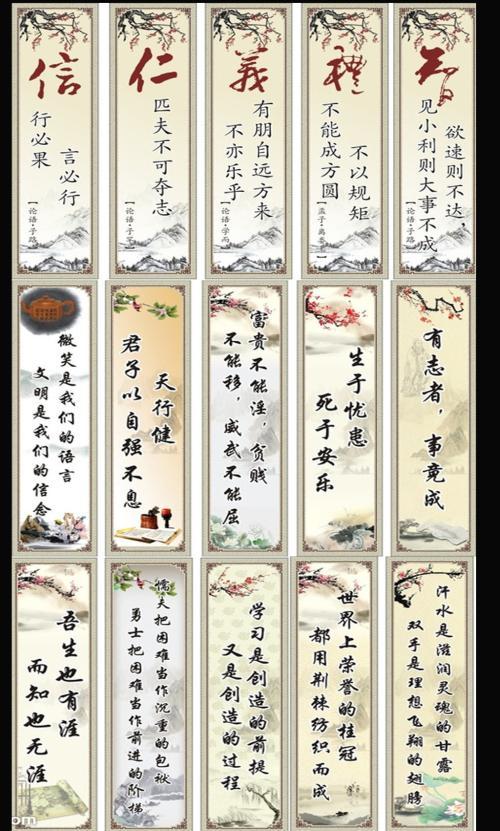 信
言必行
行必果
【论语·子路】
仁
匹夫不可夺志
【论语·子罕】
義
有朋自远方来
不亦乐乎
【论语·学而】
禮
不以规矩
不能成方圆
【孟子·离娄】
智
欲速则不达，
见小利则大事不成
【论语·子路】
微笑是我们的语言
文明是我们的信念
天行健
君子以自强不息
富贵不能淫，贫贱
不能移，威武不能屈
生于忧患
死于安乐
有志者，事竟成
吾生也有涯
而知也无涯
懦夫把困难当作沉重的包袱
勇士把困难当作前进的阶梯
学习是创造的前提
又是创造的过程
世界上荣誉的桂冠
都用荆棘纺织而成
汗水是滋润灵魂的甘露
双手是理想飞翔的翅膀
om